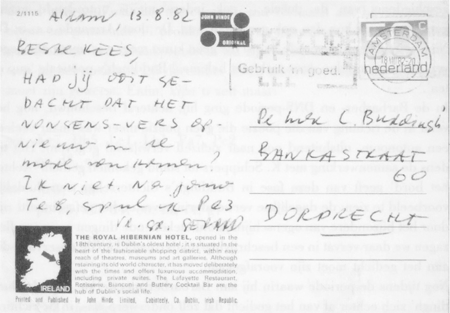 2/1115
13.8.82
BESTE KEES,
HAD jij OOIT GE-
DACHT DAT HET
NONSENS-VERS OP-
NIEUW IN DE
MODE VAN KOMEN?
IK NIET. NA JOUW
VR. GR. GERARD
JOHN HINDE
ORIGINAL
POSTCODE
Gebruik 'm goed.
AMSTERDAM
nederland
C. Buddingh'
BANKASTRAAT
60
DORDRECHT
IRELAND
THE ROYAL HIBERNIAN HOTEL, opened in the
18th century, is Dublin's oldest hotel; it is situated in the
heart of the fashionable shopping district, within easy
reach of theatres, museums and art galleries. Although
retaining its old world character, it has moved deliberately
with the times and offers luxurious accommodation,
including private suites. The Lafayette Restaurant,
Rotisserie, and Buttery Cocktail Bar are the
hub of Dublin's social life.
Printed and Published by John Hinde Limited, Cabinteely, Co. Dublin, Irish Republic.